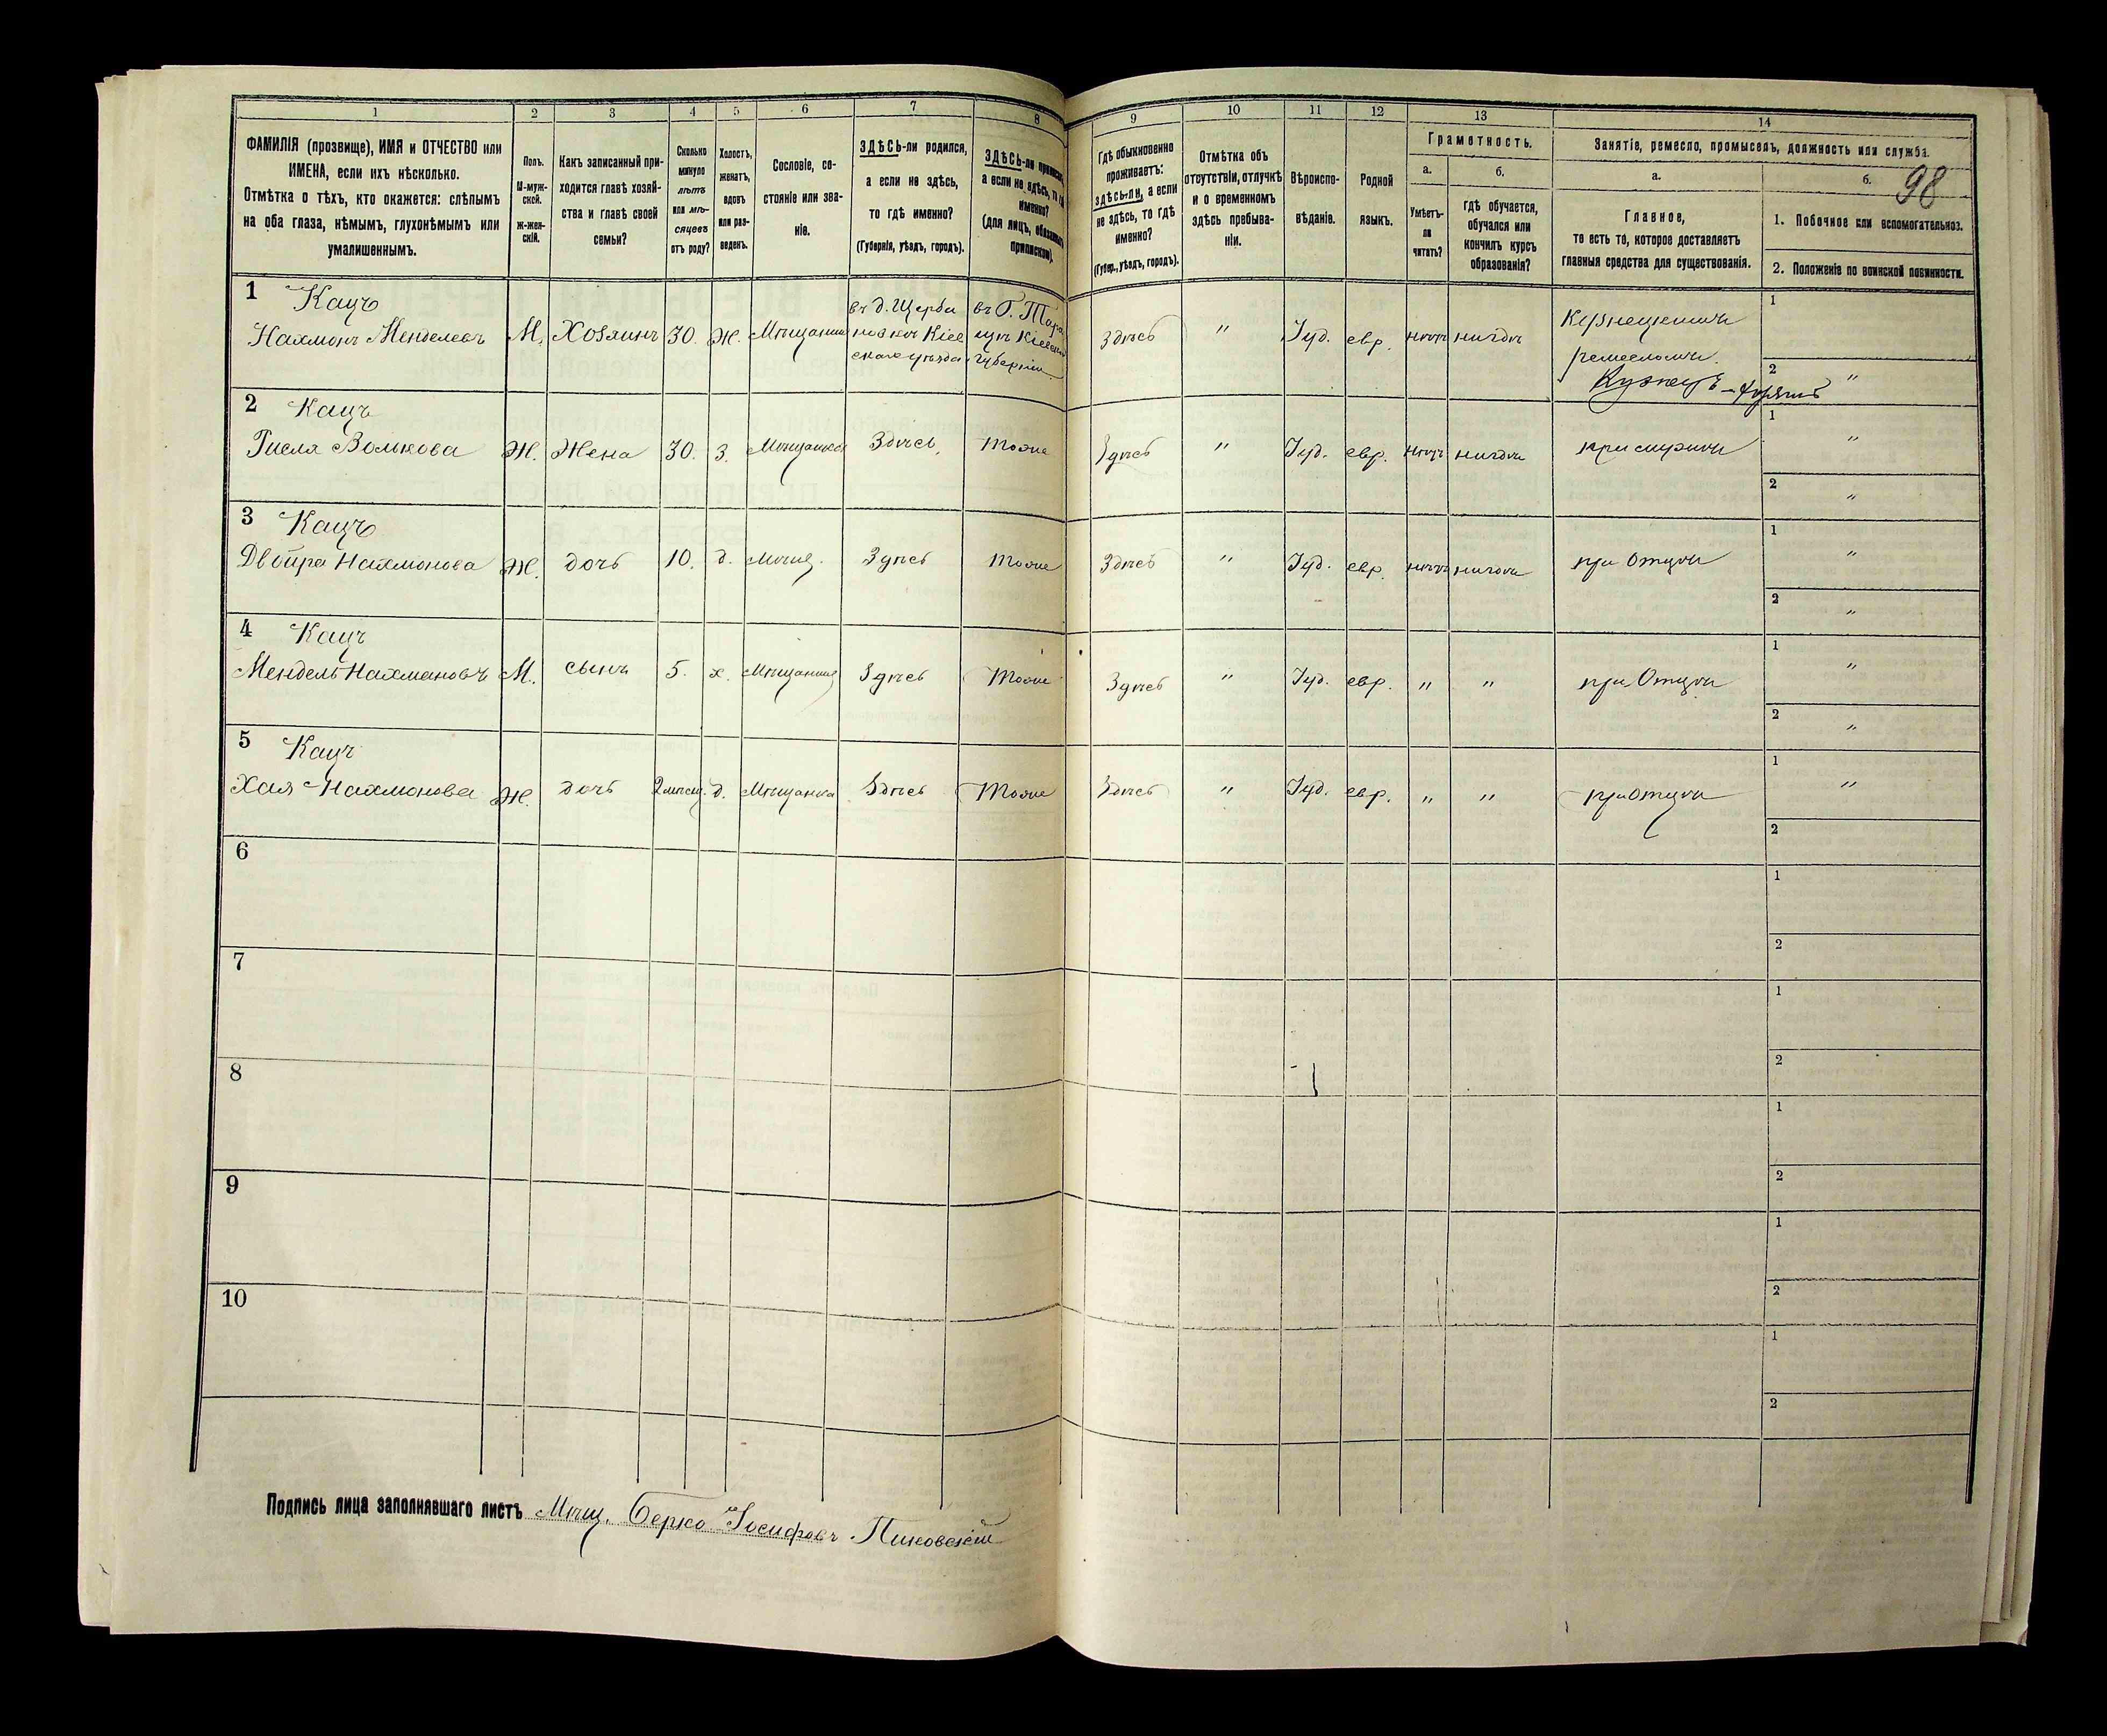 1 2 3 4 5 6 7 8 9 10 11 12 13 14
98
ФАМИЛІЯ (прозвище), ИМЯ и ОТЧЕСТВО или
ИМЕНА, если ихъ нѣсколько.
Отмѣтка о тѣхъ, кто окажется: слѣпымъ
на оба глаза, нѣмымъ, глухонѣмымъ или
умалишеннымъ.
Полъ.
М-муж-
ской.
Ж-жен-
скій.
Какъ записанный при-
ходится главѣ хозяй-
ства и главѣ своей
семьи?
Сколько
минуло
лѣтъ
или мѣ-
сяцевъ
отъ роду?
Холостъ,
женатъ,
вдовъ
или раз-
веденъ.
Сословіе, со-
стояніе или зва-
ніе.
ЗДѢСЬ-ли родился,
а если не здѣсь,
то гдѣ именно?
(Губернія, уѣздъ, городъ).
ЗДѢСЬ-ли приписанъ,
а если не здѣсь, то гдѣ
именно?
(для лицъ, обязанныхъ
припискою).
Гдѣ обыкновенно
проживаетъ:
здѣсь-ли, а если
не здѣсь, то гдѣ
именно?
(Губер., уѣздъ, городъ).
Отмѣтка объ
отсутствіи, отлучкѣ
и о временномъ
здѣсь пребыва-
ніи.
Вѣроиспо-
вѣданіе.
Родной
языкъ.
Грамотность.
а.
Умѣетъ-
ли
читать?
б.
гдѣ обучается,
обучался или
кончилъ курсъ
образованія?
Занятіе, ремесло, промыселъ, должность или служба.
а.
Главное,
то есть то, которое доставляетъ
главныя средства для существованія.
б.
1. Побочное или вспомогательное.
2. Положеніе по воинской повинности.
1 Кацъ
Нахмонъ Менделевъ М. Хозяинъ 30. Ж. Мѣщанинъ
въ д. Щерба
новкѣ Кіев
скаго уѣзда
въ Г. Тара
щѣ Кіевской
Губерніи
Здѣсь " Іуд. евр. нѣтъ нигдѣ
Кузнецкимъ
ремесломъ
Кузнецъ
1
2 "
2 Кацъ
Гиеля Волькова Ж. Жена 30. З. Мѣщанка Здѣсь, тоже Здѣсь " Іуд. евр. нѣтъ нигдѣ при мужѣ
1 "
2 "
3 Кацъ
Двойра Нахмонова Ж. дочь 10. д. Мѣщ. Здѣсь тоже Здѣсь " Іуд. евр. нѣтъ нигдѣ при Отцѣ
1 "
2 "
4 Кацъ
Мендель Нахмановъ М. сынъ 5. х. Мѣщанинъ Здѣсь тоже Здѣсь " Іуд. евр. " " при Отцѣ
1 "
2 "
5 Кацъ
Хая Нахмонова Ж. дочь 2 мѣсяц. д. Мѣщанка Здѣсь тоже Здѣсь " Іуд. евр. " " при Отцѣ
1 "
2
6
1
2
7
1
2
8
1
2
9
1
2
10
1
2
Подпись лица заполнявшаго листъ Мѣщ. Берко Іосифовъ Пиковскій